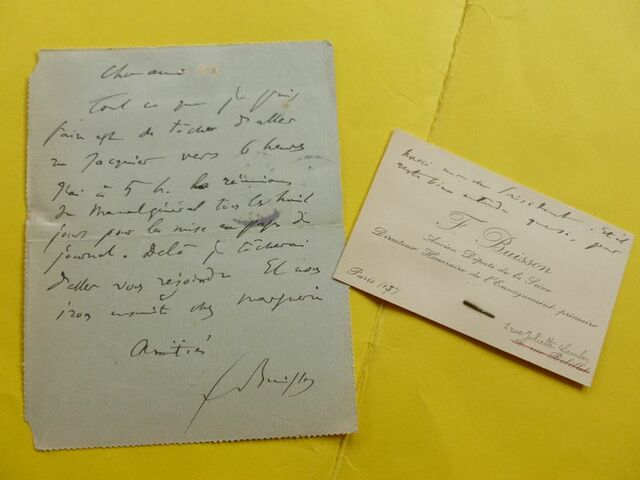 Cher ami
Tout ce que je puis
faire est de tâcher d'aller
au Jacquier vers 6 heures
J'ai à 5 h. la réunion
du Manuel général tous les huit
jours pour la mise en pages du
journal. De là je tâcherai
d'aller vous rejoindre Et nous
irons ensuite chez
Amitiés
F Buisson
Merci mon cher Président. Et il
reste bien entendu que
F. Buisson
Ancien Député de la Seine
Directeur Honoraire de l'Enseignement primaire
Paris
rue Juliette Lamber